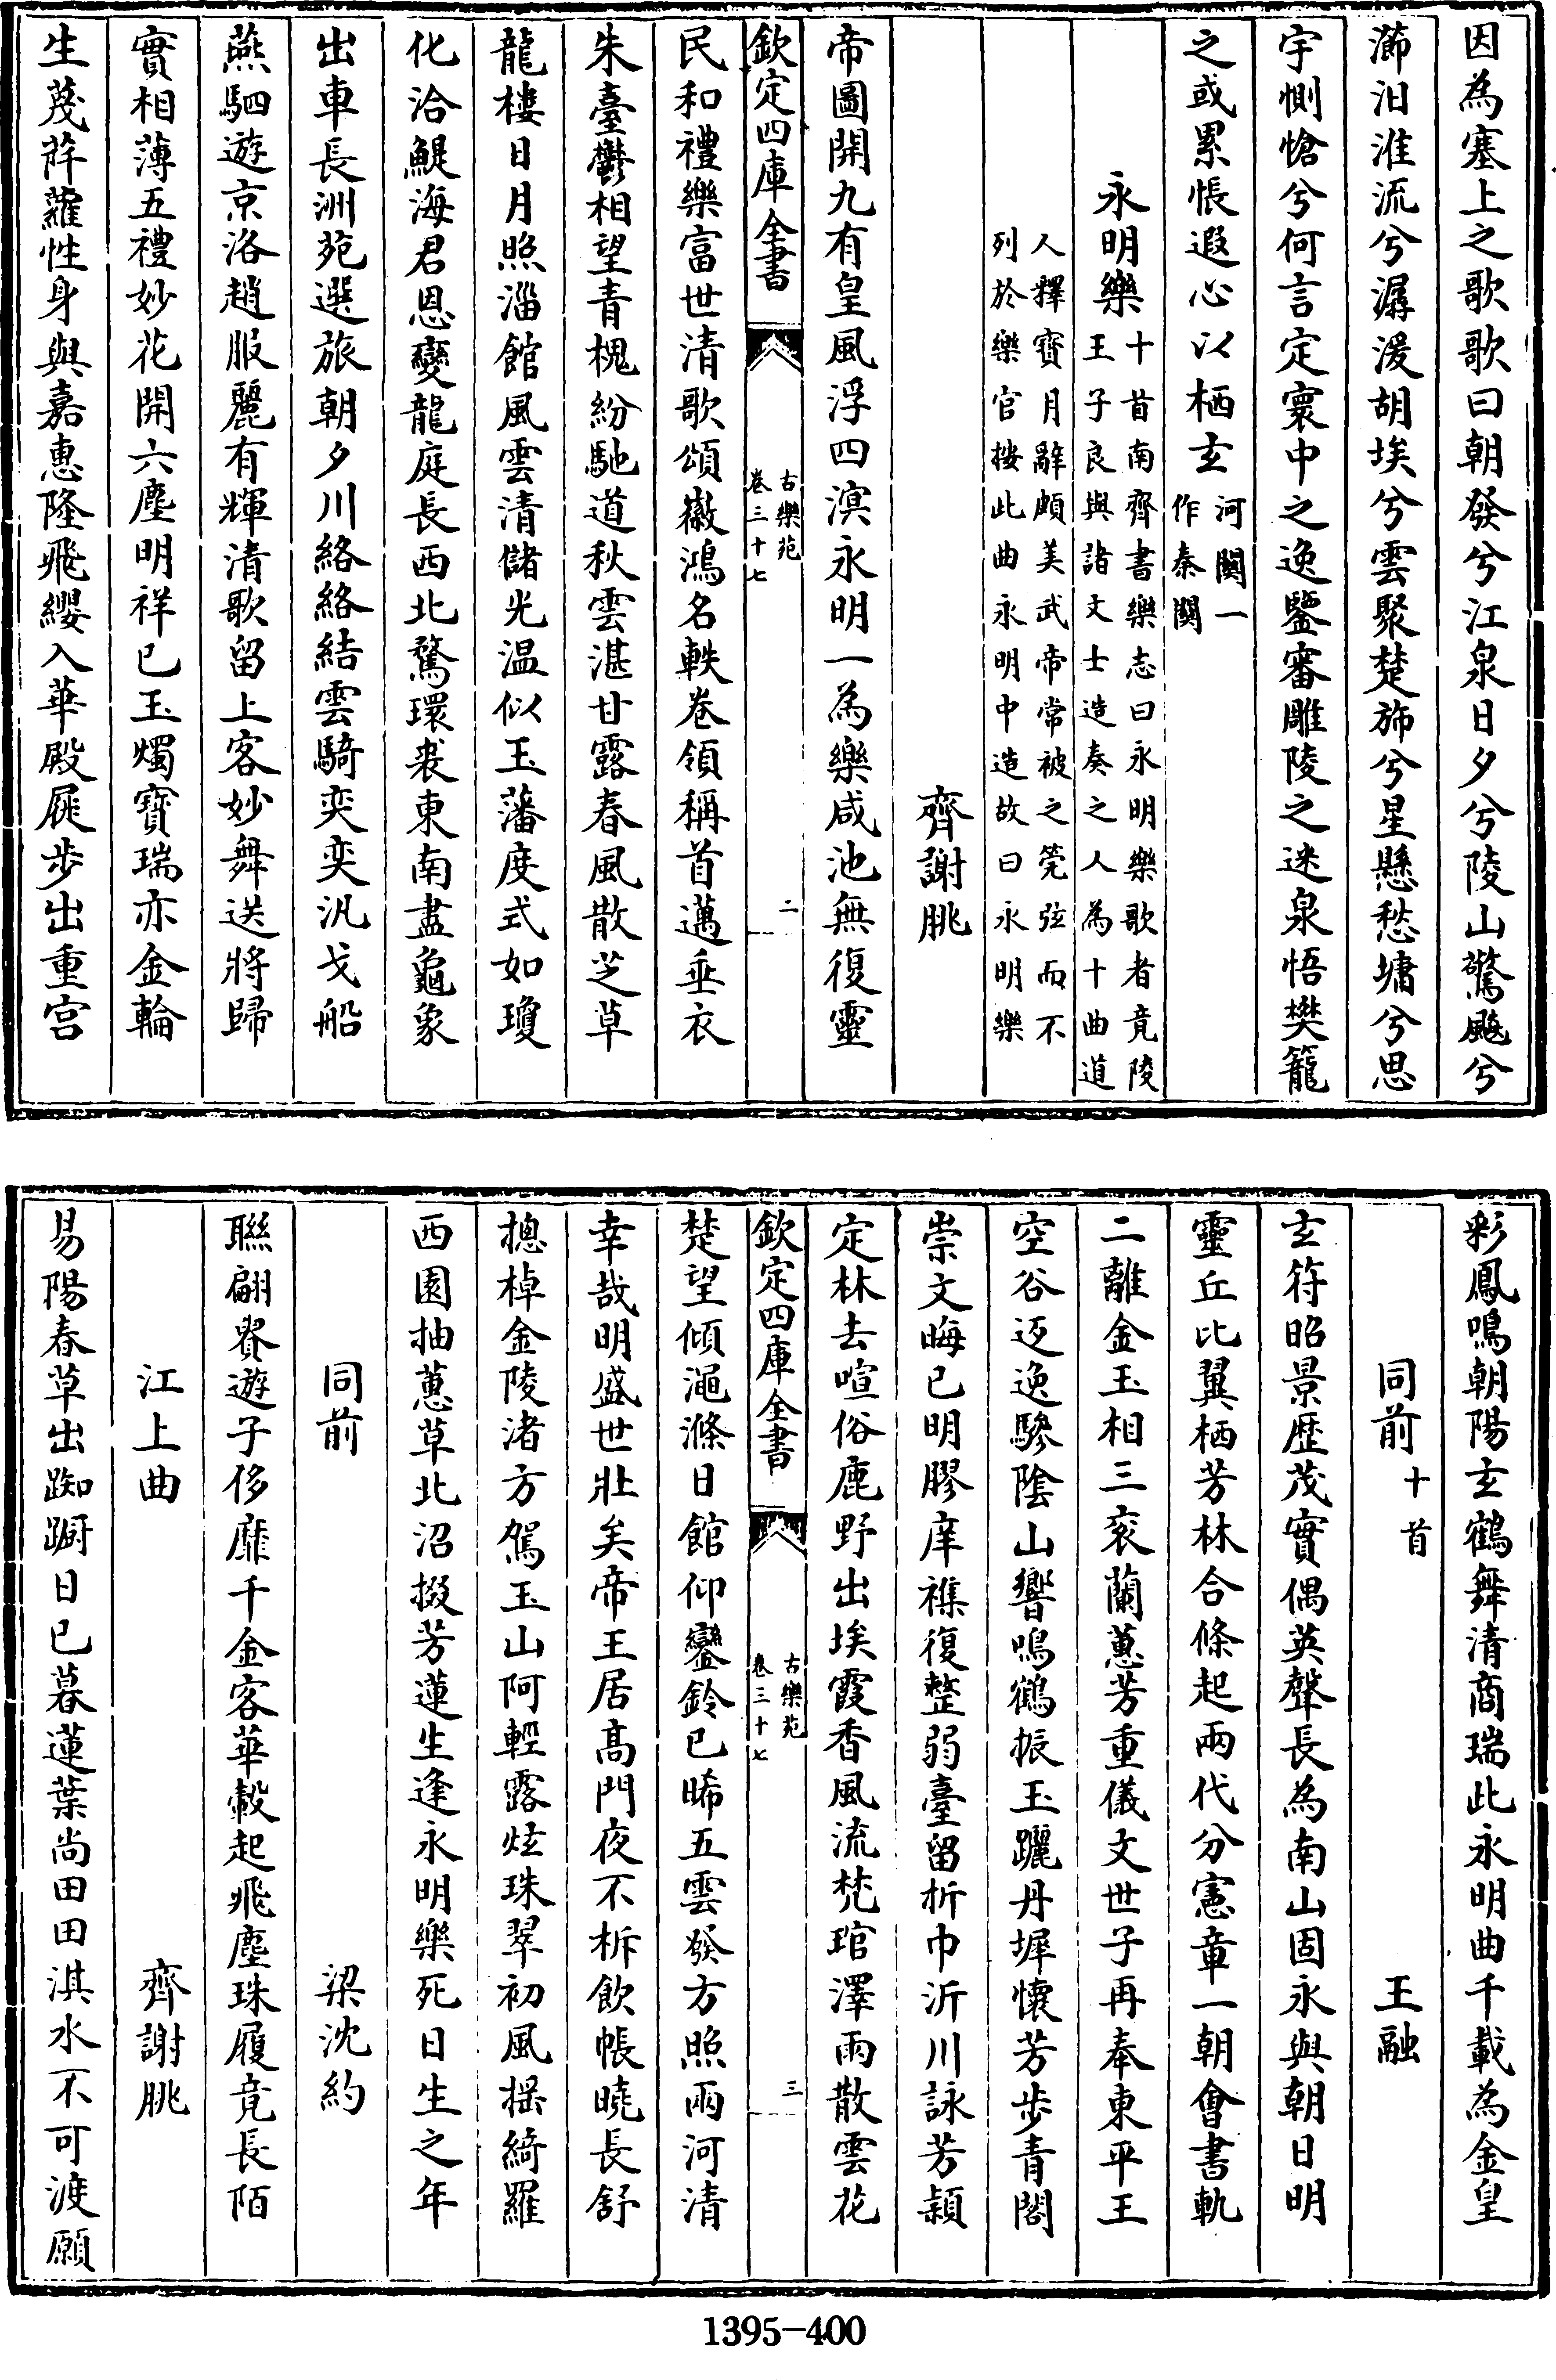 因為塞上之歌歌曰朝發兮江泉日夕兮陵山驚飈兮
㵧汩淮流兮潺湲胡埃兮雲聚楚斾兮星懸愁墉兮思
宇惻愴兮何言定寰中之逸鑒審雕陵之迷泉悟樊籠
之或累悵遐心以栖玄河闋一作秦闋
永明樂十首南齊書樂志曰永明樂歌者竟陵王子良與諸文士造奏之人為十曲道
人釋寶月辭頗美武帝常被之筦弦而不列於樂官按此曲永明中造故曰永明樂
齊謝朓
帝圖開九有皇風浮四溟永明一為樂咸池無復靈
欽定四庫全書
古樂苑卷三十七
二
民和禮樂富世清歌頌徽鴻名軼卷領稱首邁垂衣
朱臺鬱相望青槐紛馳道秋雲湛甘露春風散芝草
龍樓日月照淄館風雲清儲光温似玉藩度式如瓊
化洽鯷海君恩變龍庭長西北鶩環裘東南盡龜象
出車長洲苑選旅朝夕川絡絡結雲騎奕奕汎戈船
燕駟遊京洛趙服麗有輝清歌留上客妙舞送將歸
實相薄五禮妙花開六塵明祥已玉燭寶瑞亦金輪
生蔑苧蘿性身與嘉惠隆飛纓入華殿屣步出重宮
彩鳳鳴朝陽玄鶴舞清商瑞此永明曲千載為金皇
同前十首　王融
玄符昭景歷茂實偶英聲長為南山固永與朝日明
靈丘比翼栖芳林合條起兩代分憲章一朝會書軌
二離金玉相三衮蘭蕙芳重儀文世子再奉東平王
空谷返逸驂陰山響鳴鶴振玉躧丹墀懷芳步青閣
崇文晦已明膠庠襍復整弱臺留折巾沂川詠芳潁
定林去喧俗鹿野出埃霞香風流梵琯澤雨散雲花
欽定四庫全書
古樂苑卷三十七
三
楚望傾澠滌日館仰鑾鈴已晞五雲發方照兩河清
幸哉明盛世壯矣帝王居高門夜不柝飲帳曉長舒
摠棹金陵渚方駕玉山阿輕露炫珠翠初風揺綺羅
西園抽蕙草北沼掇芳蓮生逢永明樂死日生之年
同前　梁沈約
聯翩貴遊子侈靡千金客華轂起飛塵珠履竟長陌
江上曲　齊謝朓
易陽春草出踟躕日已暮蓮葉尚田田淇水不可渡願
1395-400